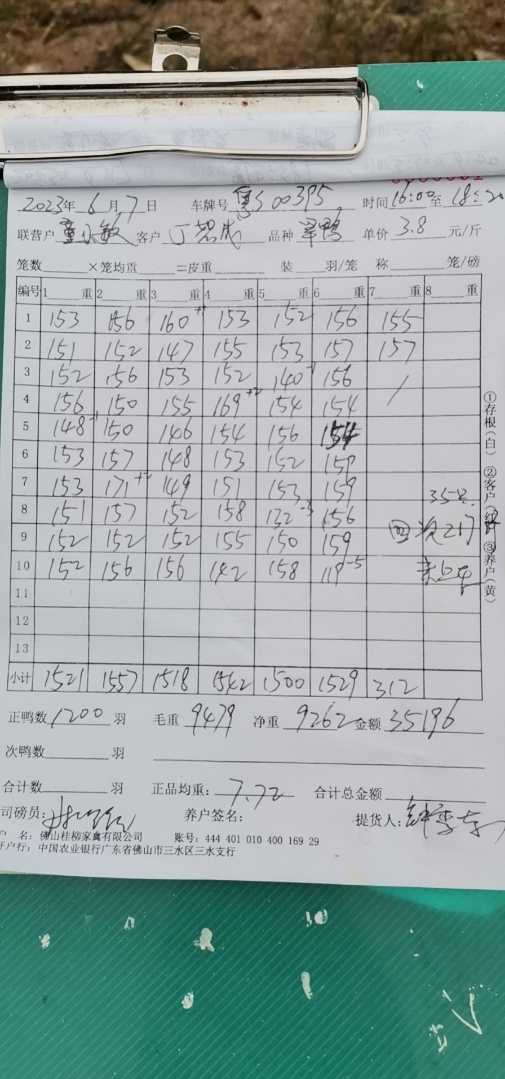 2023年 6月 7日 车牌号 粤S00395 时间 16:00至 18:20
联营户 客户 品种 单价 3.8 元/斤
笼数 ×笼均重 =皮重 装 羽/笼 称 笼/磅
编号 1 重 2 重 3 重 4 重 5 重 6 重 7 重 8 重
1 153 156 160 +1 153 152 156 155
2 151 152 147 155 153 157 157
3 152 156 153 152 140 -1 156 /
4 156 150 155 169 +2 154 154
5 148 -1 150 146 154 156 154
6 153 157 148 153 152 159
7 153 171 +2 149 151 153 159
8 151 157 152 158 132 -3 156
9 152 152 152 155 150 159
10 152 156 156 142 158 119 -5
11
12
13
小计 1521 1557 1518 1542 1500 1529 312
四次217
①存根(白) ②客户(红) ③养户(黄)
正鸭数 1200 羽 毛重 9479 净重 9262 金额 35196
次鸭数 羽
合计数 羽 正品均重: 7.72 合计总金额
司磅员: 养户签名: 提货人:
户 名: 佛山桂柳家禽有限公司 账号: 444 401 010 400 169 29
开户行: 中国农业银行广东省佛山市三水区三水支行